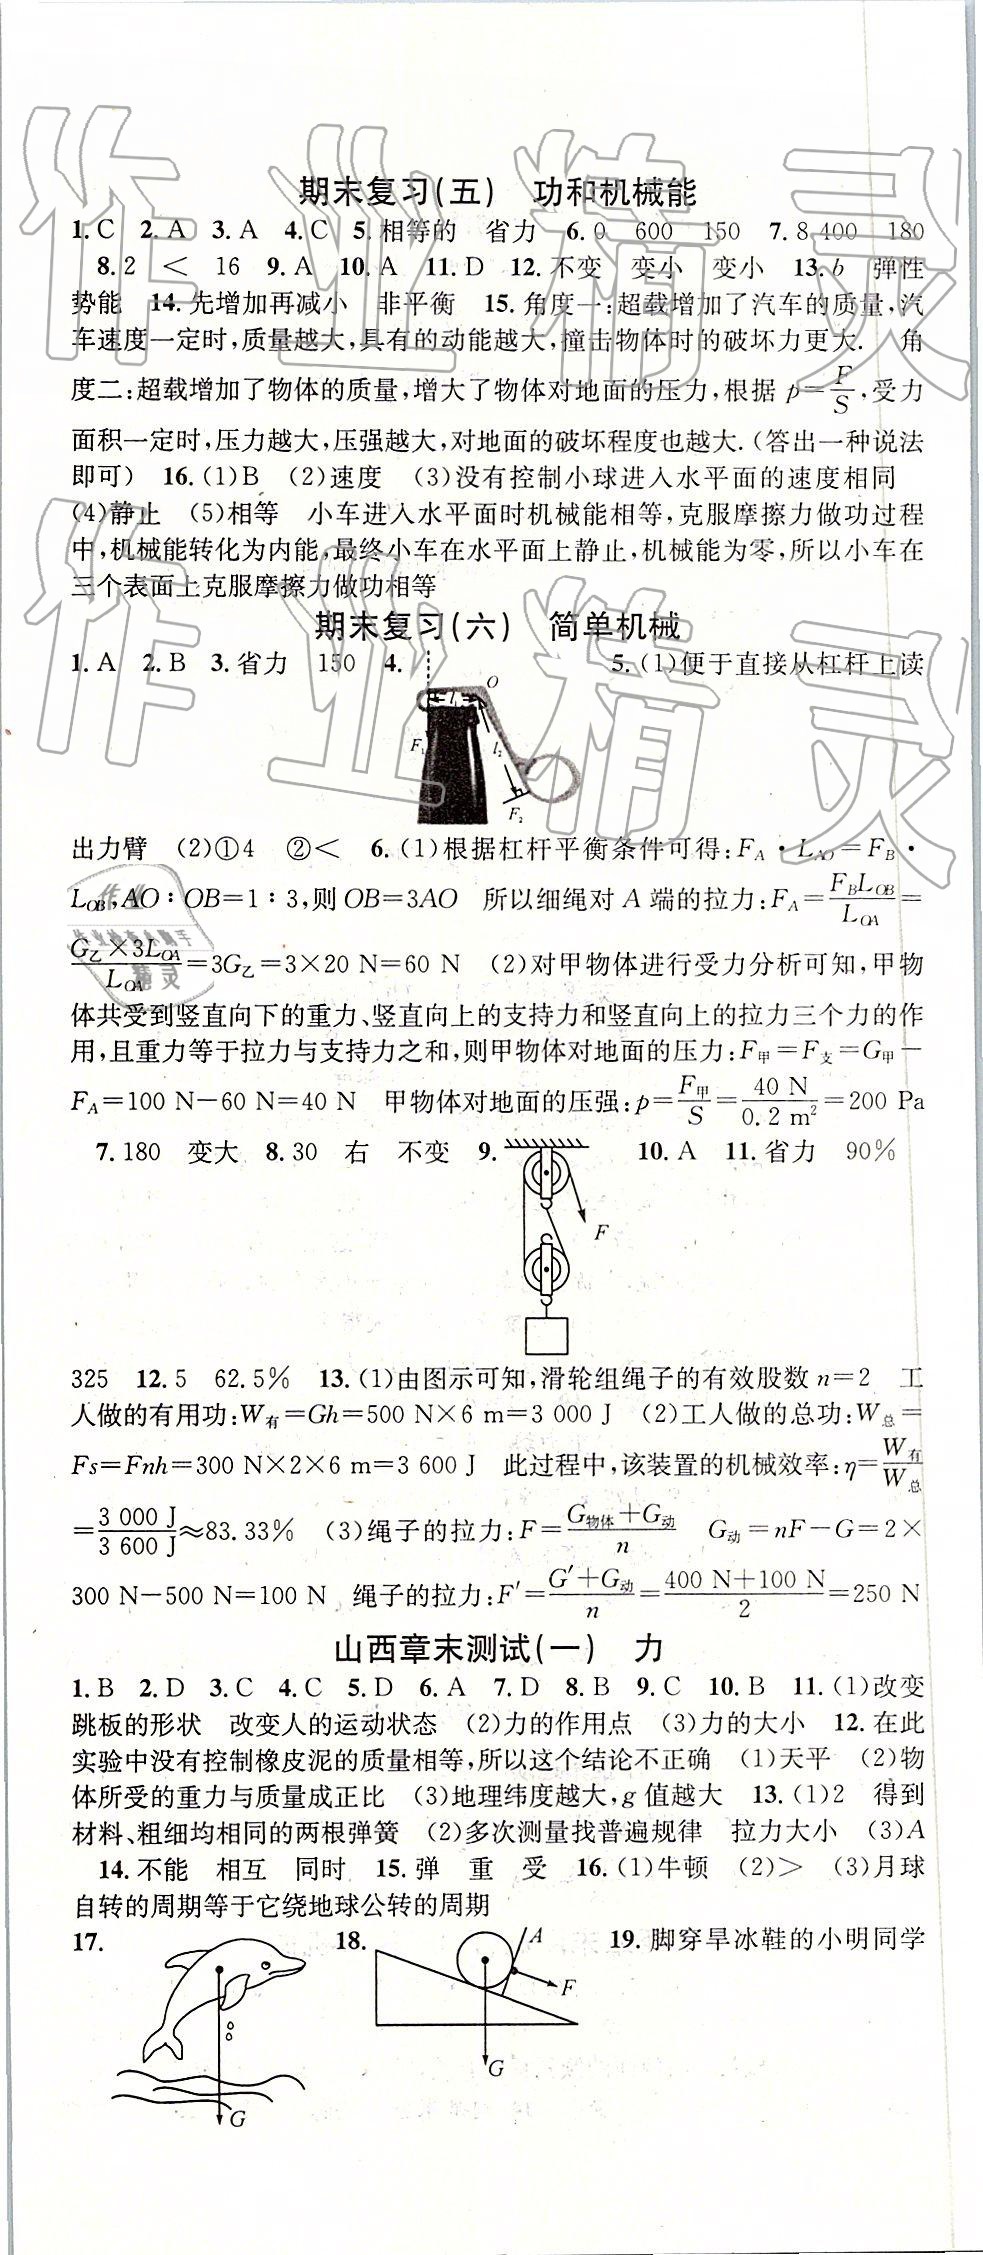 期末复习(五)　功和机械能
1.C　2.A　3.A　4.C　5.相等的　省力　6.0　600　150　7.8 400　180
8.2　<　16　9.A　10.A　11.D　12.不变　变小　变小　13.b　弹性
势能　14.先增加再减小　非平衡　15.角度一:超载增加了汽车的质量,汽
车速度一定时,质量越大,具有的动能越大,撞击物体时的破坏力更大.　角
度二:超载增加了物体的质量,增大了物体对地面的压力,根据 p=F/S,受力
面积一定时,压力越大,压强越大,对地面的破坏程度也越大.(答出一种说法
即可)　16.(1)B　(2)速度　(3)没有控制小球进入水平面的速度相同
(4)静止　(5)相等　小车进入水平面时机械能相等,克服摩擦力做功过程
中,机械能转化为内能,最终小车在水平面上静止,机械能为零,所以小车在
三个表面上克服摩擦力做功相等
期末复习(六)　简单机械
1.A　2.B　3.省力　150　4.　5.(1)便于直接从杠杆上读
O
l₁
F₁
l₂
F₂
出力臂　(2)①4　②<　6.(1)根据杠杆平衡条件可得:F_A·L_AO=F_B·
L_OB,AO∶OB=1∶3,则 OB=3AO　所以细绳对 A 端的拉力:F_A=F_B L_OB/L_OA=
G乙×3L_OA/L_OA=3G乙=3×20 N=60 N　(2)对甲物体进行受力分析可知,甲物
体共受到竖直向下的重力、竖直向上的支持力和竖直向上的拉力三个力的作
用,且重力等于拉力与支持力之和,则甲物体对地面的压力:F甲=F支=G甲-
F_A=100 N-60 N=40 N　甲物体对地面的压强:p=F甲/S=40 N/0.2 m²=200 Pa
7.180　变大　8.30　右　不变　9.　10.A　11.省力　90%
F
325　12.5　62.5%　13.(1)由图示可知,滑轮组绳子的有效股数 n=2　工
人做的有用功:W有=Gh=500 N×6 m=3 000 J　(2)工人做的总功:W总=
Fs=Fnh=300 N×2×6 m=3 600 J　此过程中,该装置的机械效率:η=W有/W总
=3 000 J/3 600 J≈83.33%　(3)绳子的拉力:F=(G物体+G动)/n　G动=nF-G=2×
300 N-500 N=100 N　绳子的拉力:F′=(G′+G动)/n=(400 N+100 N)/2=250 N
山西章末测试(一)　力
1.B　2.D　3.C　4.C　5.D　6.A　7.D　8.B　9.C　10.B　11.(1)改变
跳板的形状　改变人的运动状态　(2)力的作用点　(3)力的大小　12.在此
实验中没有控制橡皮泥的质量相等,所以这个结论不正确　(1)天平　(2)物
体所受的重力与质量成正比　(3)地理纬度越大,g 值越大　13.(1)2　得到
材料、粗细均相同的两根弹簧　(2)多次测量找普遍规律　拉力大小　(3)A
14.不能　相互　同时　15.弹　重　受　16.(1)牛顿　(2)>　(3)月球
自转的周期等于它绕地球公转的周期
17.　18.　19.脚穿旱冰鞋的小明同学
A
F
G
G
作业精灵
作业精灵